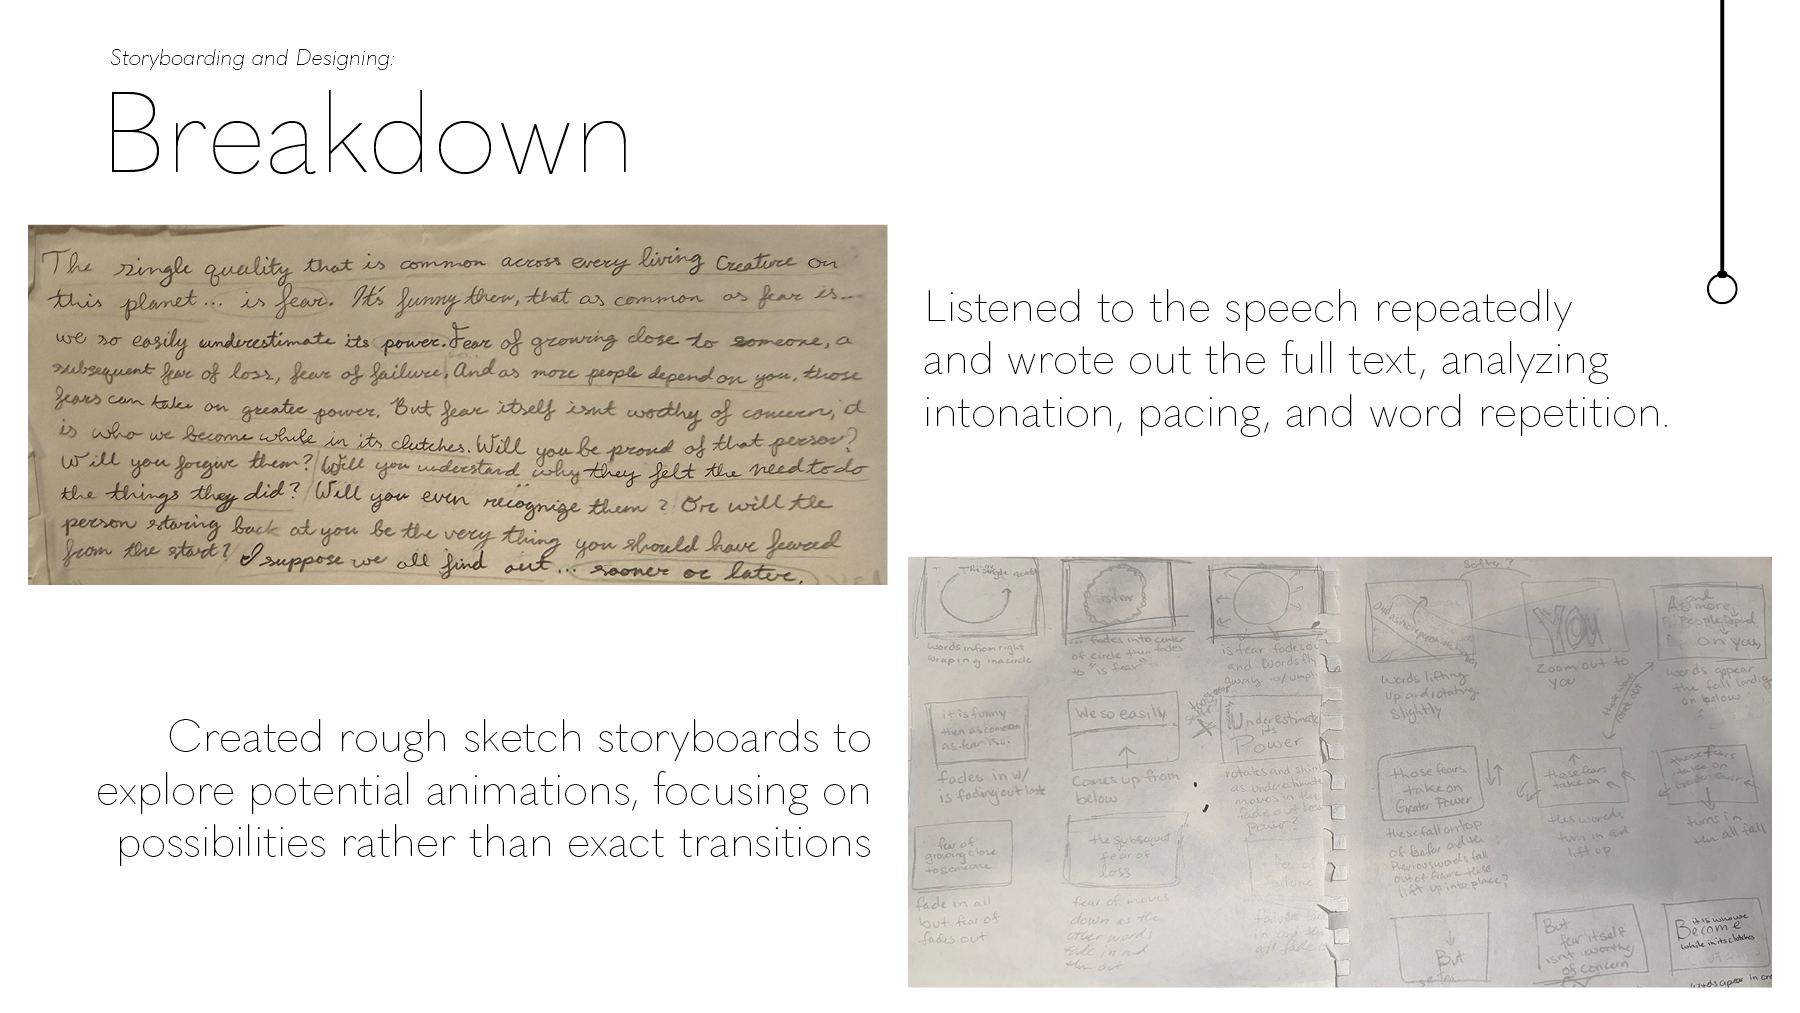 Storyboarding and Designing:
Breakdown
The single quality that is common across every living Creature on
this planet... is fear. It's funny then, that as common as fear is...
we so easily underestimate its power. Fear of growing close to someone, a
subsequent fear of loss, fear of failure. And as more people depend on you, those
fears can take on greater power. But fear itself isnt worthy of concern, it
is who we become while in its clutches. Will you be proud of that person?
Will you forgive them? Will you understand why they felt the need to do
the things they did? Will you even recognize them? Or will the
person staring back at you be the very thing you should have feared
from the start? I suppose we all find out... sooner or later.
Listened to the speech repeatedly
and wrote out the full text, analyzing
intonation, pacing, and word repetition.
Created rough sketch storyboards to
explore potential animations, focusing on
possibilities rather than exact transitions
The single
words in from right
wraping in a circle
is fear
... fades into center
of circle then fades
to "is fear"
is fear fades out
and words fly
away w/
it is funny
then as common
as fear is...
fades in w/
is fading out last
We so easily
Comes up from
below
Underestimate
its
Power
rotates and
as underestimate
moves in
Power?
fear of
growing close
to someone
fade in all
but fear of
fades out
the subsequent
fear of
loss
fear of moves
down as the
other words
fade in and
then out
fear of
all fade
Softer?
words lifting
up and rotating
slightly
You
Zoom out to
you
and
As more,
People Depend
on you,
words appear
on below
those fears
take on
Greater Power
these fall on top
of fear and the
Previous words fall
out of frame
lift up into place?
those fears
take on
this words
turn in and
lift up
those fears
take on
turns in
then all fall
But
But
fear itself
isnt worthy
of concern
it is who we
Become
while in its clutches